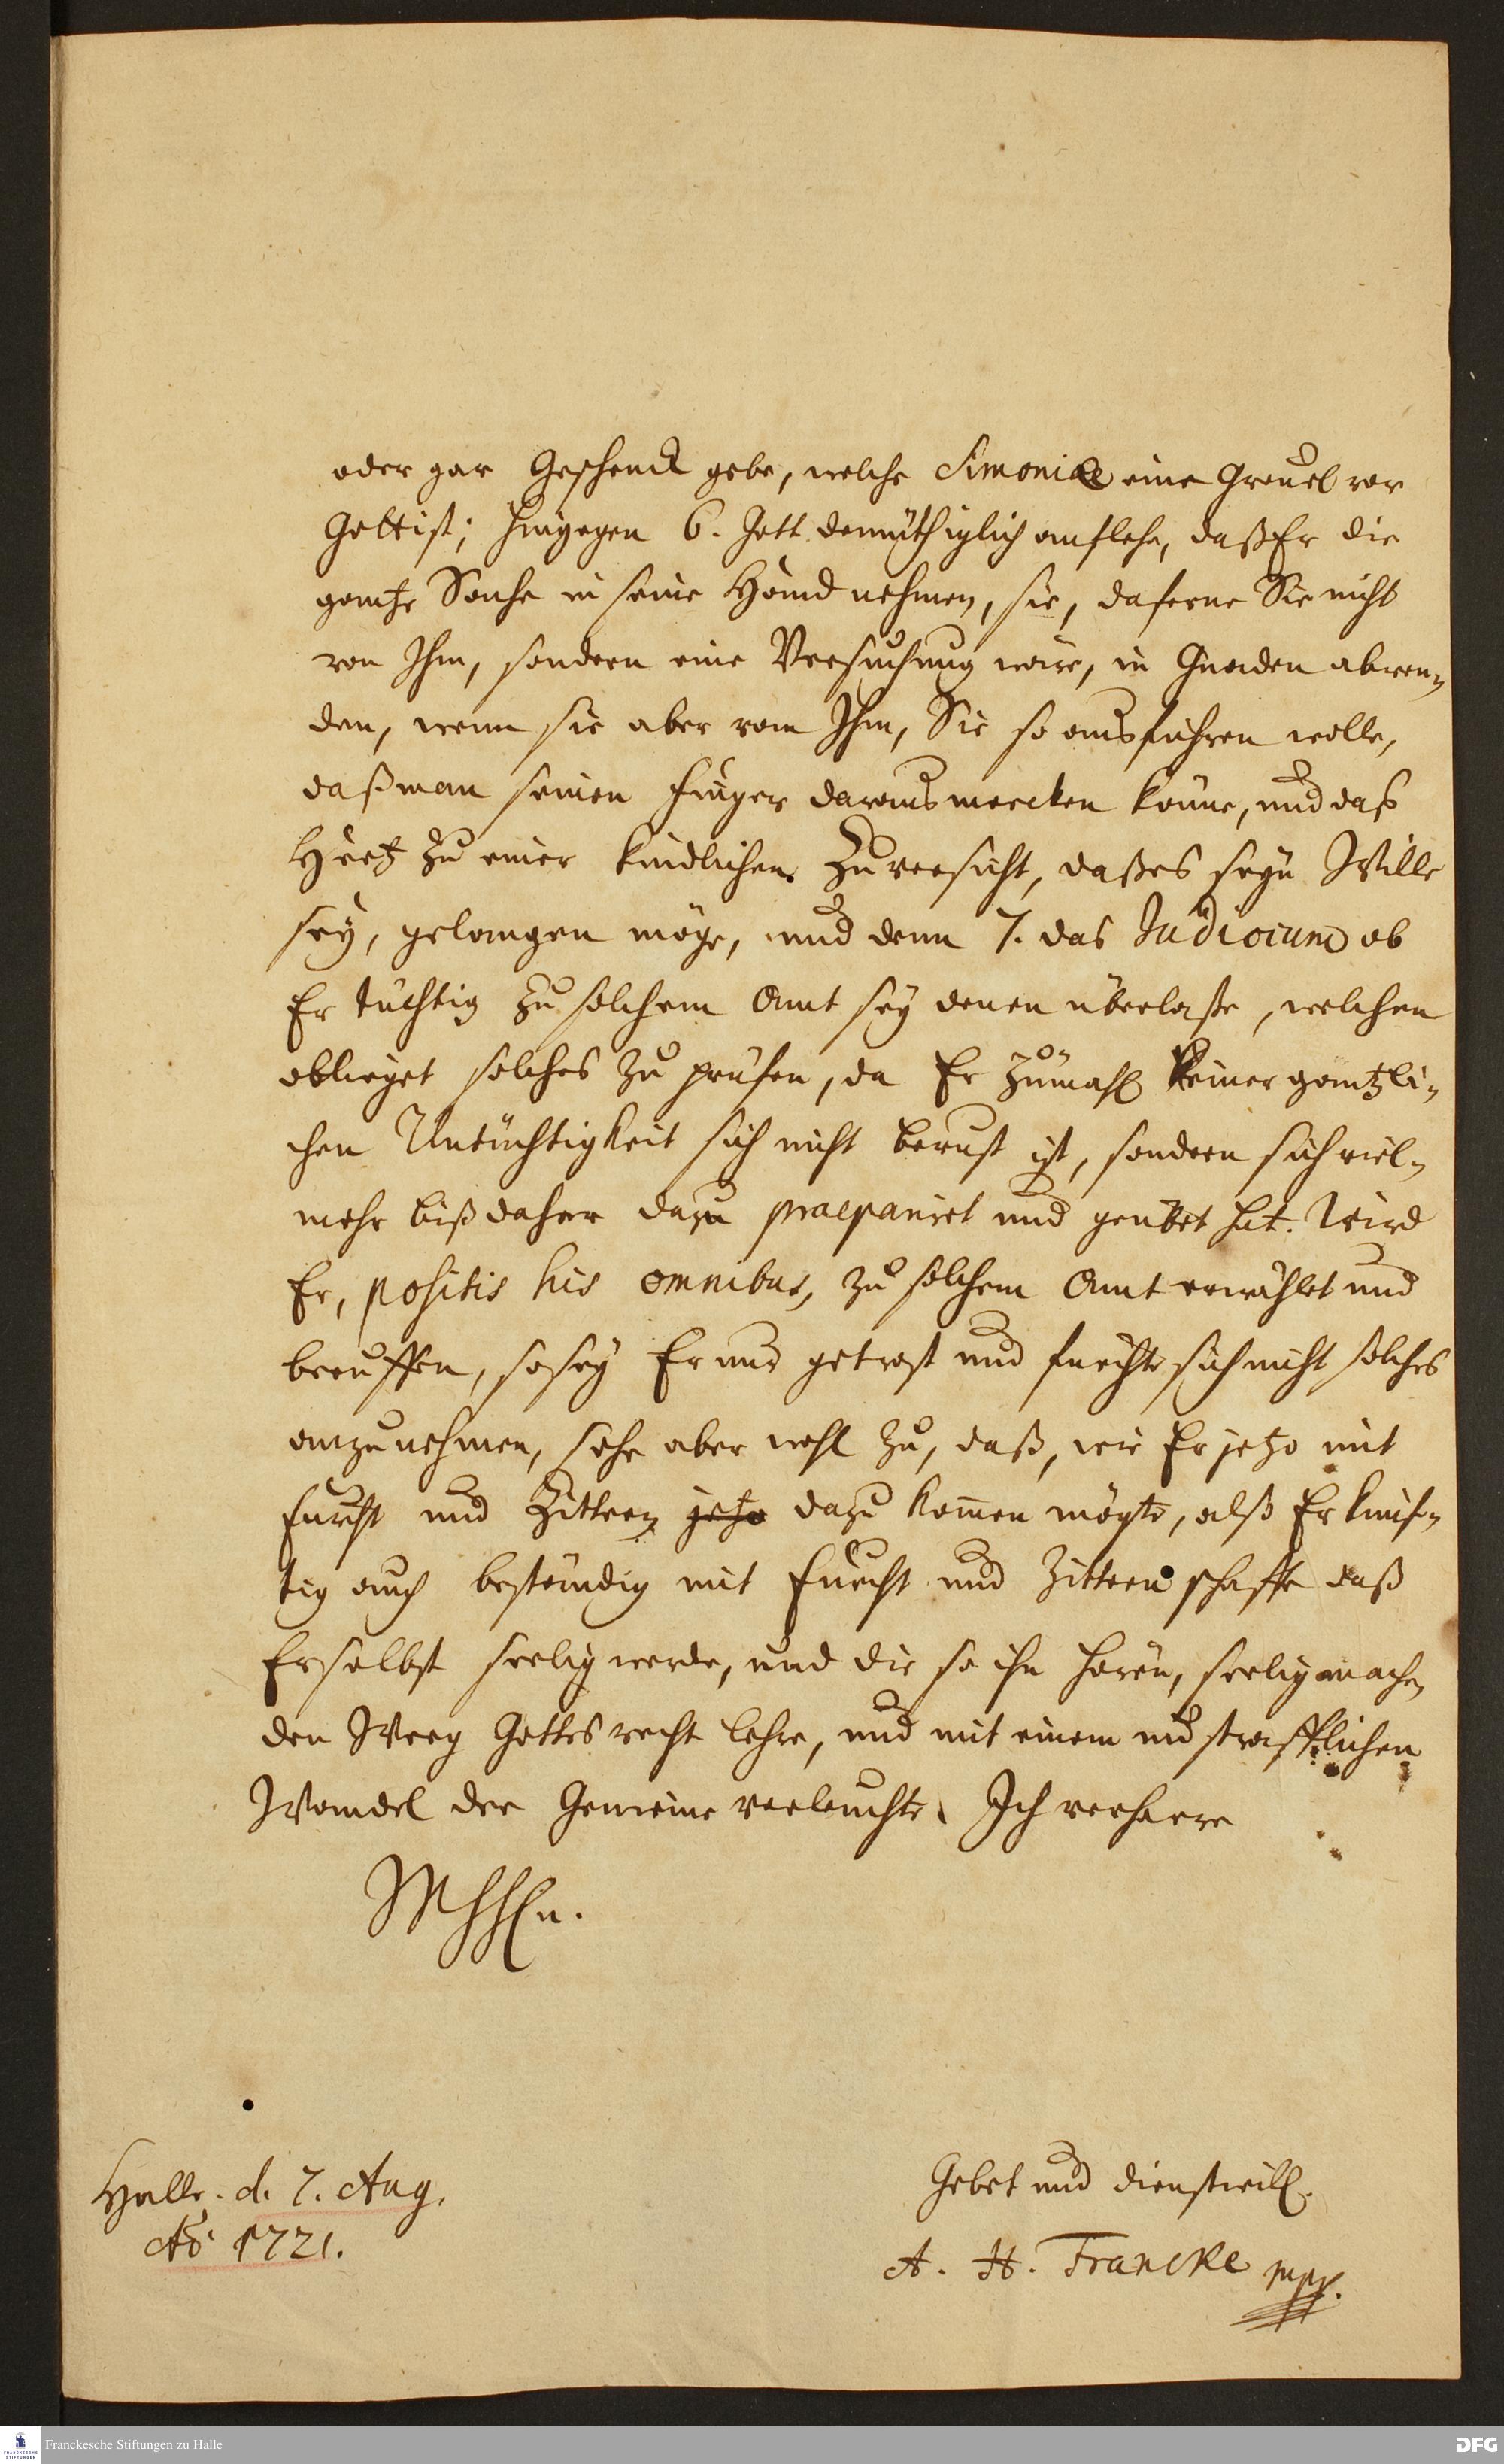 oder gar Geschenck gebe, welche Simoniae eine Greuel vor
Gott ist; hingegen 6. Gott demüthiglich anflehe, daß Er die
gantze Sache in seine Hand nehmen, sie, daferne Sie nicht
von Ihm, sondern eine Versuchung wäre, in Gnaden abwen-
den, wenn sie aber von Ihm, Sie so ausführen wolle,
daß man seinen Finger daraus mercken könne, und daß
Hertz zu einer kindlichen Zuversicht, daß es seyn Wille
sey, gelangen möge, und denn 7. das Judicium ob
Er tüchtig zu solchem Amt sey denen überlaße, welchen
oblieget solches zu prüfen, da Er zumahl keiner gäntzli-
chen Untüchtigkeit sich nicht bewust ist, sondern sich viel-
mehr bißdaher dazu praepariret und geübet hat. Wird
Er, positis his omnibus, zu solchem Amt erwählet und
beruffen, so sey Er nur getrost und fürchte sich nicht solches
anzunehmen, sehe aber wohl zu, daß, wie Er jetzo mit
Furcht und Zittern jetzo dazu kom̄en mögte, alß Er künf-
tig auch beständig mit Furcht und Zittern schaffe daß
Er selbst seelig werde, und die so ihn hören, seelig mache,
den Weeg Gottes recht lehre, und mit einem unsträfflichen
Wandel der Gemeine vorleuchte. Ich verharre
MHHEn.
Halle. d. 7. Aug.
Ao 1721.
Gebet und dienstwill.
A. H. Francke mpp.
Franckesche Stiftungen zu Halle
DFG